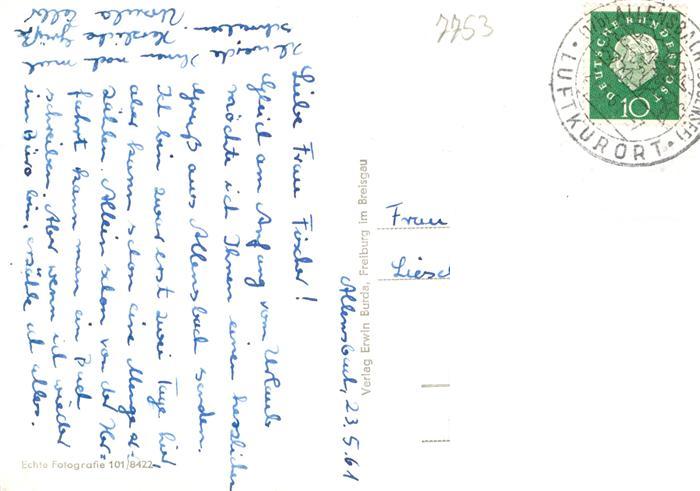 Allensbach, 23.5.61
Liebe Frau Fischer!
Gleich am Anfang vom Urlaub
möchte ich Ihnen einen herzlichen
Gruß aus Allensbach senden.
Ich bin zwar erst zwei Tage hier,
aber kann schon eine Menge er-
zählen. Allein schon von der Her-
fahrt kann man ein Buch
schreiben. Aber wenn ich wieder
im Büro bin, erzähle ich alles.
Ich werde Ihnen noch mal
schreiben. Herzliche Grüße
Ursula
7753
DEUTSCHE BUNDESPOST
10
ALLENSBACH
LUFTKURORT
Frau
Liesel
Verlag Erwin Burda, Freiburg im Breisgau
Echte Fotografie 101/8422